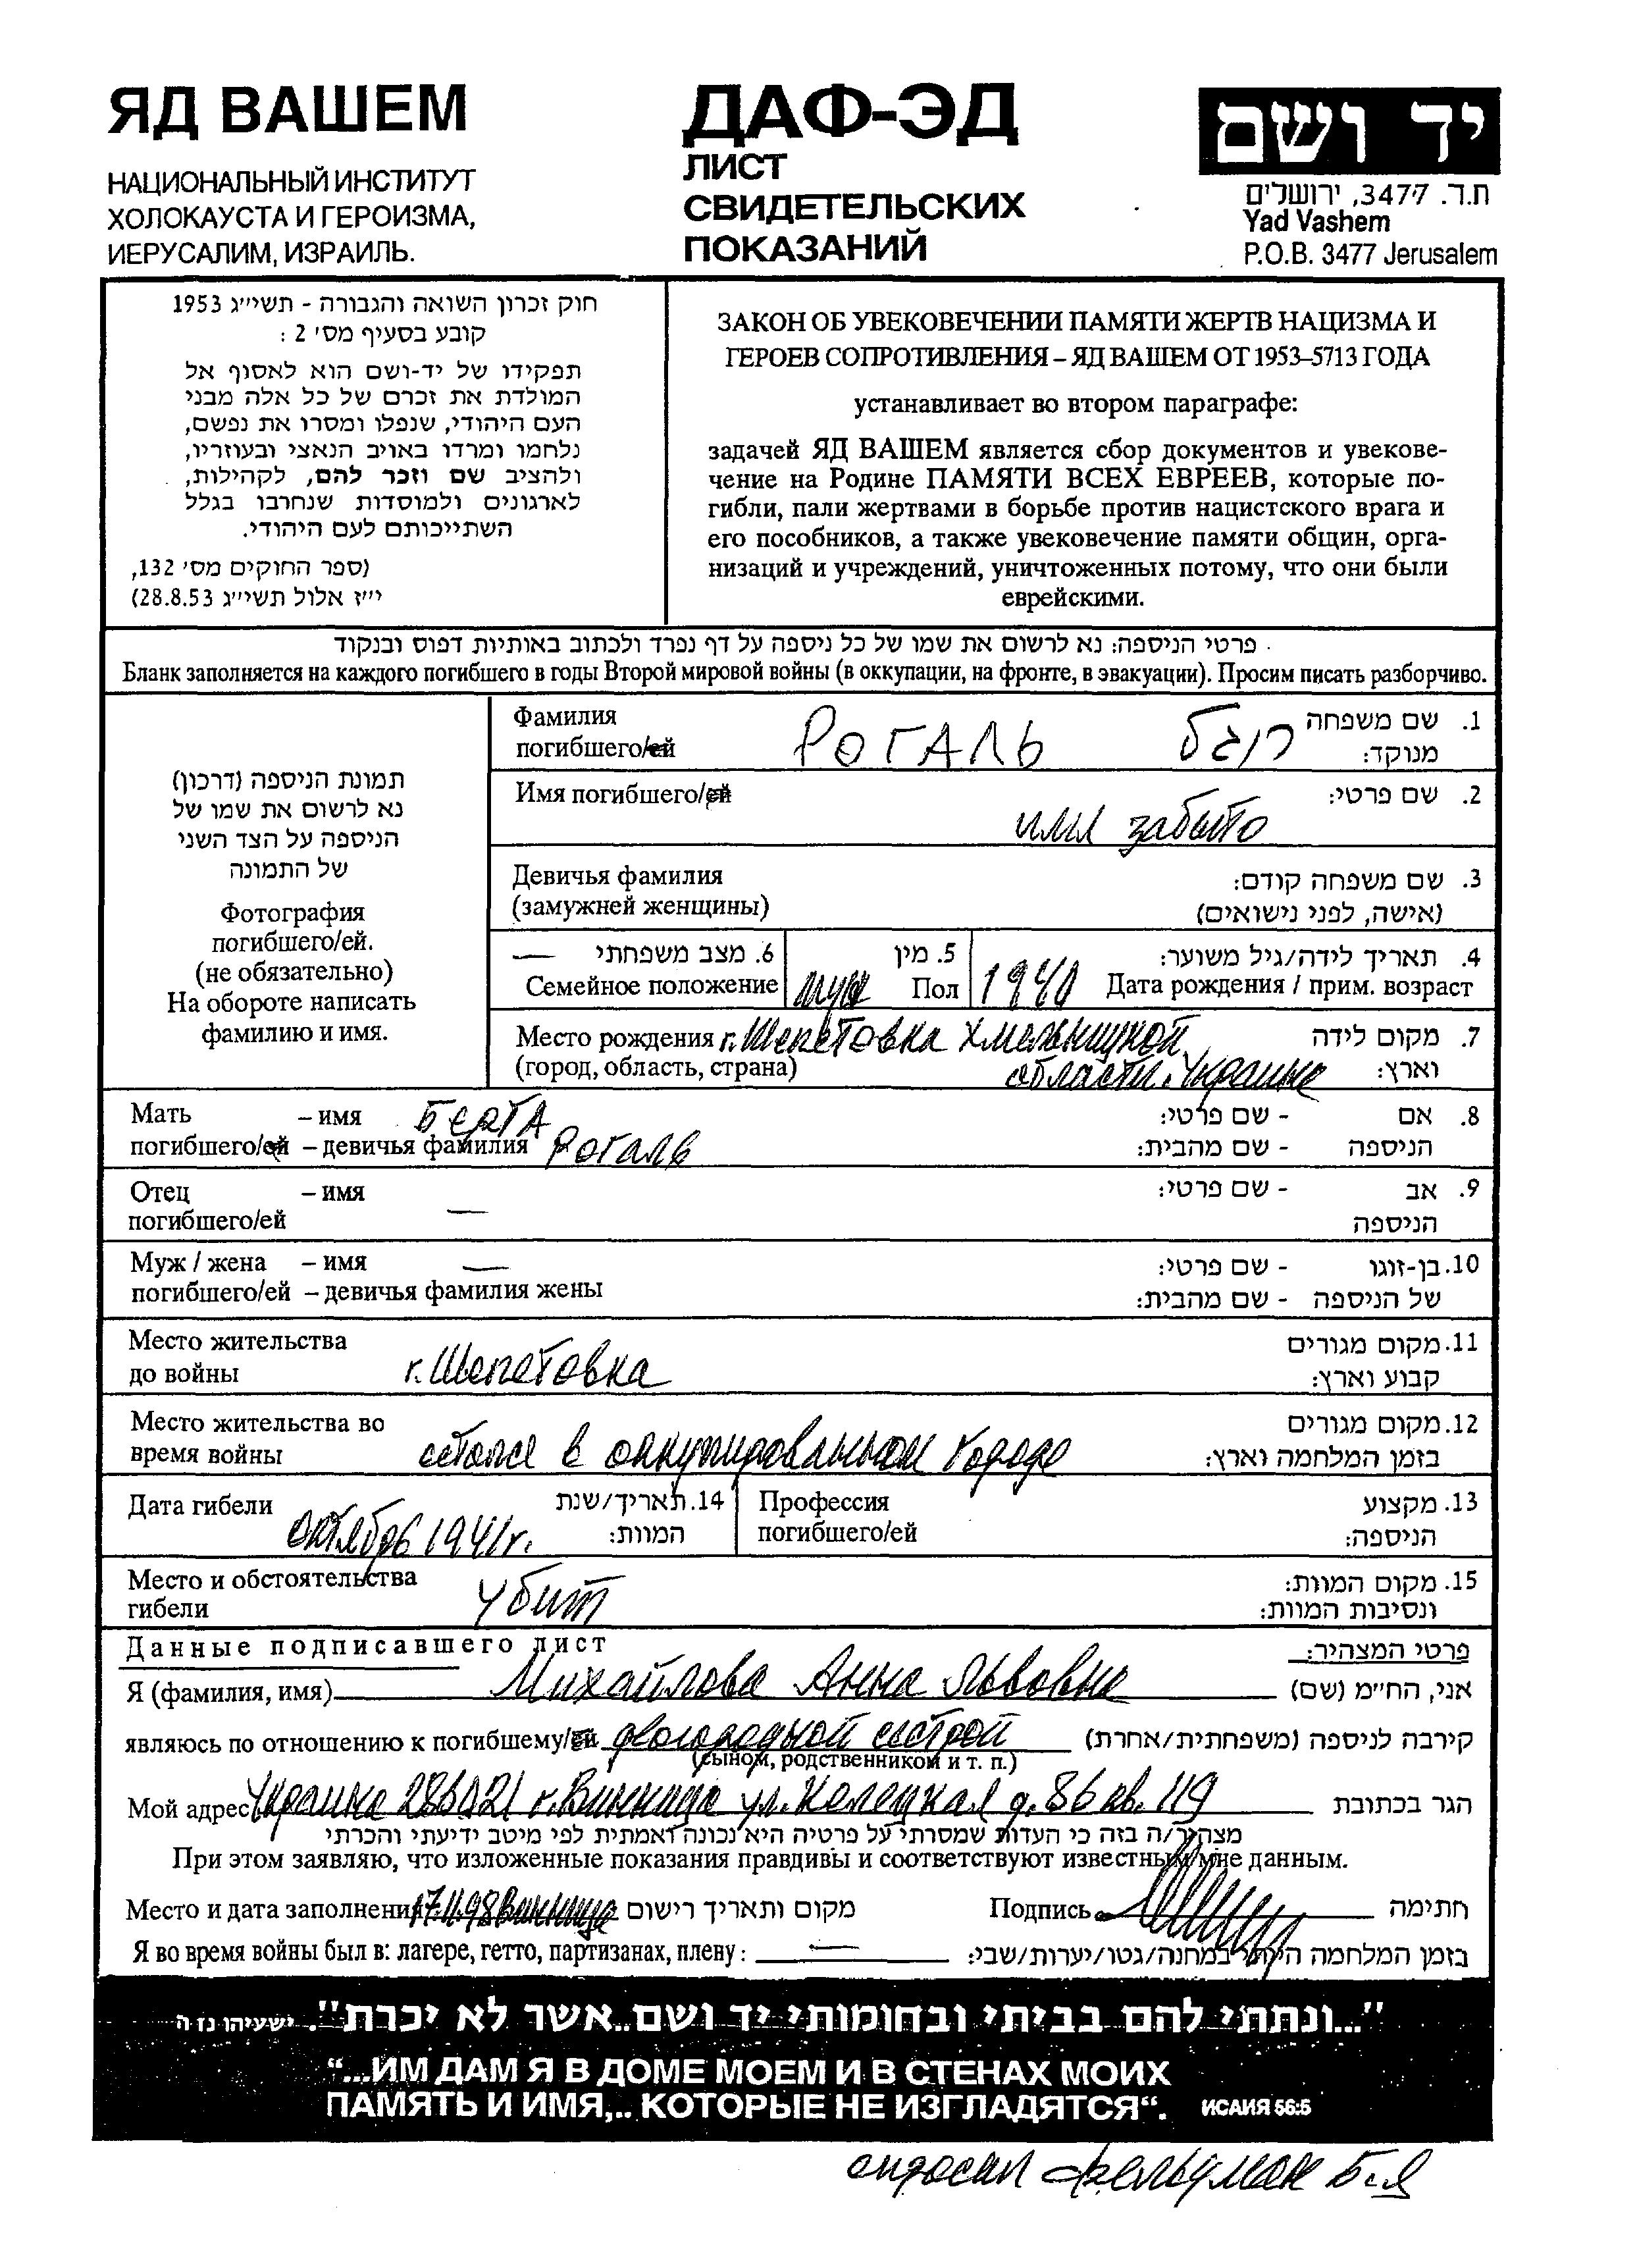 ЯД ВАШЕМ
НАЦИОНАЛЬНЫЙ ИНСТИТУТ
ХОЛОКАУСТА И ГЕРОИЗМА,
ИЕРУСАЛИМ, ИЗРАИЛЬ.
ДАФ-ЭД
ЛИСТ
СВИДЕТЕЛЬСКИХ
ПОКАЗАНИЙ
יד ושם
ת.ד. 3477, ירושלים
Yad Vashem
P.O.B. 3477 Jerusalem
חוק זכרון השואה והגבורה - תשי״ג 1953
קובע בסעיף מס׳ 2 :
תפקידו של יד-ושם הוא לאסוף אל
המולדת את זכרם של כל אלה מבני
העם היהודי, שנפלו ומסרו את נפשם,
נלחמו ומרדו באויב הנאצי ובעוזריו,
ולהציב שם וזכר להם, לקהילות,
לארגונים ולמוסדות שנחרבו בגלל
השתייכותם לעם היהודי.
(ספר החוקים מס׳ 132,
י״ז אלול תשי״ג 28.8.53)
ЗАКОН ОБ УВЕКОВЕЧЕНИИ ПАМЯТИ ЖЕРТВ НАЦИЗМА И
ГЕРОЕВ СОПРОТИВЛЕНИЯ – ЯД ВАШЕМ ОТ 1953–5713 ГОДА
устанавливает во втором параграфе:
задачей ЯД ВАШЕМ является сбор документов и увекове-
чение на Родине ПАМЯТИ ВСЕХ ЕВРЕЕВ, которые по-
гибли, пали жертвами в борьбе против нацистского врага и
его пособников, а также увековечение памяти общин, орга-
низаций и учреждений, уничтоженных потому, что они были
еврейскими.
פרטי הניספה: נא לרשום את שמו של כל ניספה על דף נפרד ולכתוב באותיות דפוס ובנקוד
Бланк заполняется на каждого погибшего в годы Второй мировой войны (в оккупации, на фронте, в эвакуации). Просим писать разборчиво.
תמונת הניספה (דרכון)
נא לרשום את שמו של
הניספה על הצד השני
של התמונה
Фотография
погибшего/ей.
(не обязательно)
На обороте написать
фамилию и имя.
Фамилия 1. שם משפחה
погибшего/ей РОГАЛЬ רוגל מנוקד:
Имя погибшего/ей 2. שם פרטי:
имя забыто
Девичья фамилия 3. שם משפחה קודם:
(замужней женщины) (אישה, לפני נישואים)
— 6. מצב משפחתי 5. מין 4. תאריך לידה/גיל משוער:
Семейное положение муж Пол 1940 Дата рождения / прим. возраст
Место рождения г. Шепетовка Хмельницкой 7. מקום לידה
(город, область, страна) области, Украина וארץ:
Мать – имя Берта 8. אם - שם פרטי:
погибшего/ей – девичья фамилия Рогаль הניספה - שם מהבית:
Отец – имя 9. אב - שם פרטי:
погибшего/ей — הניספה
Муж / жена – имя — 10. בן-זוגו - שם פרטי:
погибшего/ей – девичья фамилия жены של הניספה - שם מהבית:
Место жительства 11. מקום מגורים
до войны г. Шепетовка קבוע וארץ:
Место жительства во 12. מקום מגורים
время войны остался в оккупированном городе בזמן המלחמה וארץ:
Дата гибели 14. תאריך/שנת Профессия 13. מקצוע
октябрь 1941г. המוות: погибшего/ей הניספה:
Место и обстоятельства 15. מקום המוות:
гибели убит ונסיבות המוות:
Данные подписавшего лист פרטי המצהיר:
Я (фамилия, имя) Михайлова Анна Львовна אני, הח״מ (שם)
являюсь по отношению к погибшему/ей двоюродной сестрой קירבה לניספה (משפחתית/אחרת)
(сыном, родственником и т. п.)
Мой адрес Украина 286021 г. Винница ул. Келецкая д. 86 кв. 119 הגר בכתובת
מצהיר/ה בזה כי העדות שמסרתי על פרטיה היא נכונה ואמתית לפי מיטב ידיעתי והכרתי
При этом заявляю, что изложенные показания правдивы и соответствуют известным мне данным.
Место и дата заполнения 17.11.98 Винница מקום ותאריך רישום Подпись חתימה
Я во время войны был в: лагере, гетто, партизанах, плену: — בזמן המלחמה הייתי במחנה/גטו/יערות/שבי:
"...ונתתי להם בביתי ובחומותי יד ושם..אשר לא יכרת". ישעיהו נז ה
“...ИМ ДАМ Я В ДОМЕ МОЕМ И В СТЕНАХ МОИХ
ПАМЯТЬ И ИМЯ,.. КОТОРЫЕ НЕ ИЗГЛАДЯТСЯ“. ИСАИЯ 56:5
Фельдман Б.Я